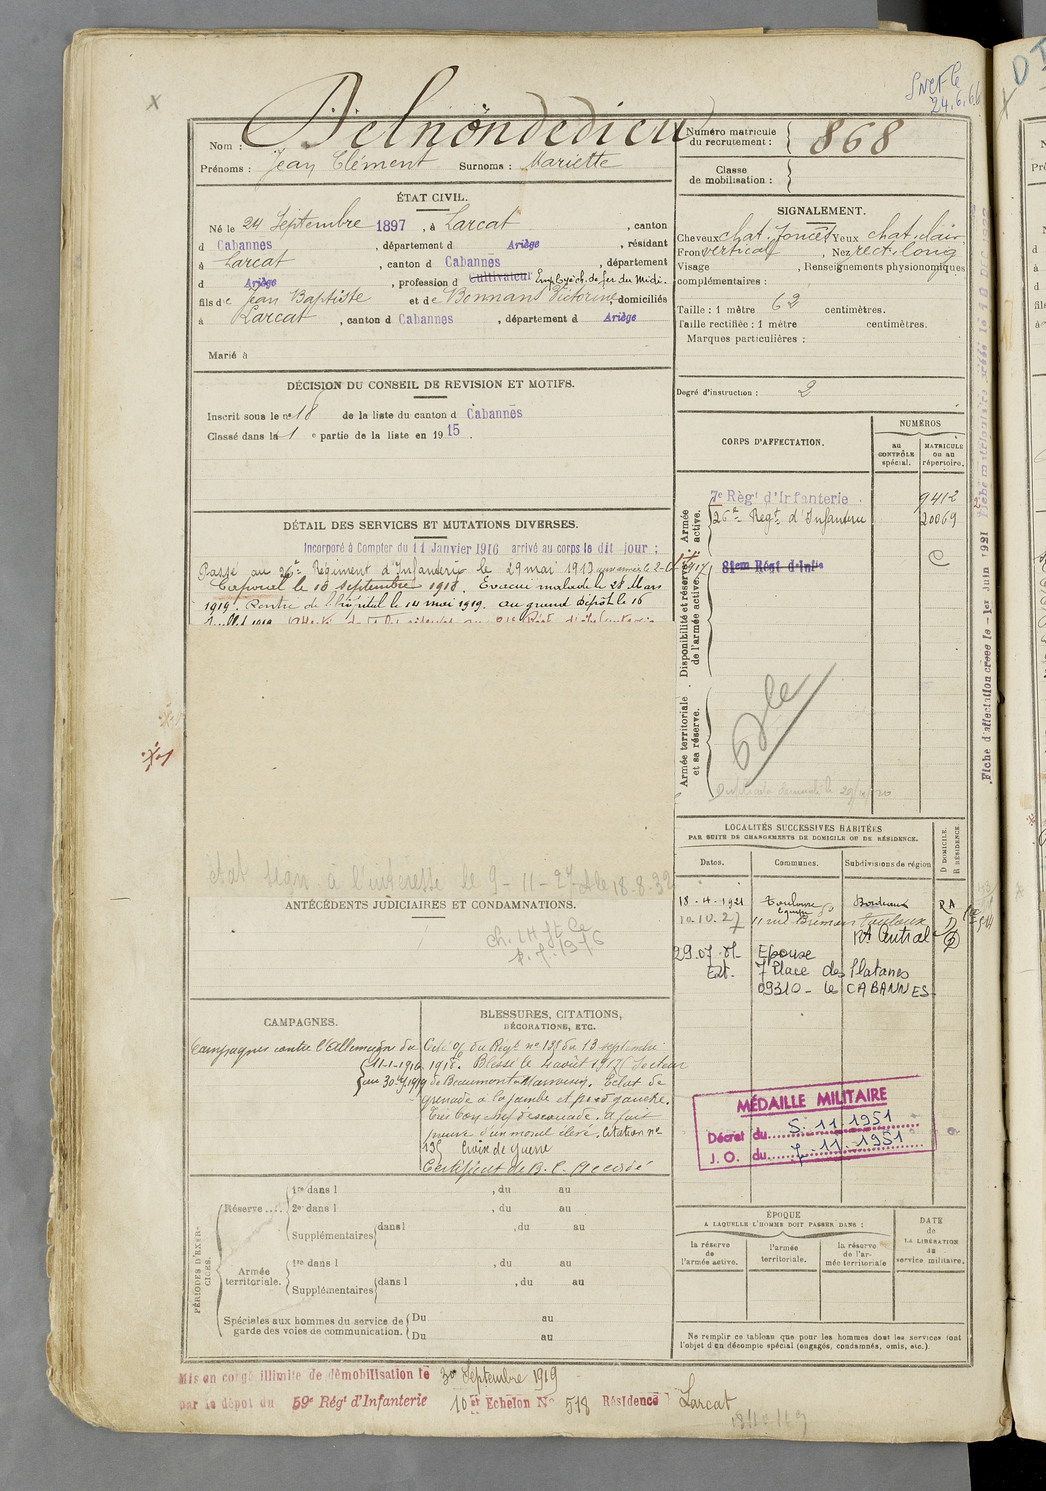 24.6.66
Nom : Delnondedieu
Prénoms : Jean Clément Surnoms : Mariette
Numéro matricule du recrutement : 868
Classe de mobilisation :
ÉTAT CIVIL.
Né le 24 Septembre 1897, à Larcat, canton
d Cabannes, département d Ariège, résidant
à Larcat, canton d Cabannes, département
d Ariège, profession d Cultivateur Employé ch. de fer du Midi.
fils de Jean Baptiste et de Bonnans Victorine, domiciliés
à Larcat, canton d Cabannes, département d Ariège
Marié à
SIGNALEMENT.
Cheveux chat. foncés Yeux chat. clair
Front vertical, Nez rect. long
Visage , Renseignements physionomiques
complémentaires :
Taille : 1 mètre 62 centimètres.
Taille rectifiée : 1 mètre centimètres.
Marques particulières :
Degré d'instruction : 2
DÉCISION DU CONSEIL DE REVISION ET MOTIFS.
Inscrit sous le nº 18 de la liste du canton d Cabannes
Classé dans la 1e partie de la liste en 1915.
DÉTAIL DES SERVICES ET MUTATIONS DIVERSES.
Incorporé à Compter du 11 Janvier 1916 arrivé au corps le dit jour ;
Passé au 26e Régiment d'Infanterie le 29 mai 1917
Caporal le 18 septembre 1918. Evacué malade le 28 Mars
1919. Rentré de l'hôpital le 14 mai 1919. au grand dépôt le 16
CORPS D'AFFECTATION.
NUMÉROS
AU CONTRÔLE spécial.
MATRICULE OU AU répertoire.
Armée active.
7e Régt d'Infanterie. 9412
26e Régt d'Infanterie 20069
C
Disponibilité et réserve de l'armée active.
81em Régt d'Infie
Armée territoriale et sa réserve.
Fiche d'affectation créée le 1er Juin 1921
état sign. à l'intéressé le 9-11-27 18-8-32
ANTÉCÉDENTS JUDICIAIRES ET CONDAMNATIONS.
LOCALITÉS SUCCESSIVES HABITÉES
PAR SUITE DE CHANGEMENTS DE DOMICILE OU DE RÉSIDENCE.
Dates. Communes. Subdivisions de région
D DOMICILE. R RÉSIDENCE.
18-4-1921 Toulouse Bordeaux RA
10.10.27 11 rue Toulouse D
Rt Central
Epouse
Ext. 7 Place des Platanes
09310 - les CABANNES
CAMPAGNES.
Campagne contre l'Allemagne du
11-1-1916
au 30-9-1919
BLESSURES, CITATIONS,
DÉCORATIONS, ETC.
Cité O/ du Régt nº 135 du 13 septembre
1918. Blessé le 4 août 1917 Secteur
de Beaumont. Eclat de
grenade à la jambe et pied gauche.
Très bon chef d'escouade. A fait
preuve d'un moral élevé. Citation nº
135 Croix de guerre
Certificat de B. C. Accordé
MÉDAILLE MILITAIRE
Décret du 5.11.1951
J. O. du 7.11.1951
PÉRIODES D'EXERCICES.
Réserve .... 1re dans l , du au
2e dans l , du au
Supplémentaires dans l , du au
Armée territoriale. 1re dans l , du au
Supplémentaires dans l , du au
Spéciales aux hommes du service de garde des voies de communication. Du au
Du au
ÉPOQUE
A LAQUELLE L'HOMME DOIT PASSER DANS :
la réserve de l'armée active.
l'armée territoriale.
la réserve de l'armée territoriale
DATE de LA LIBÉRATION du service militaire.
Ne remplir ce tableau que pour les hommes dont les services font
l'objet d'un décompte spécial (engagés, condamnés, omis, etc.)
Mis en congé illimité de démobilisation le 30 Septembre 1919
par le dépôt du 59e Régt d'Infanterie 10e Echelon Nº 518 Résidence Larcat